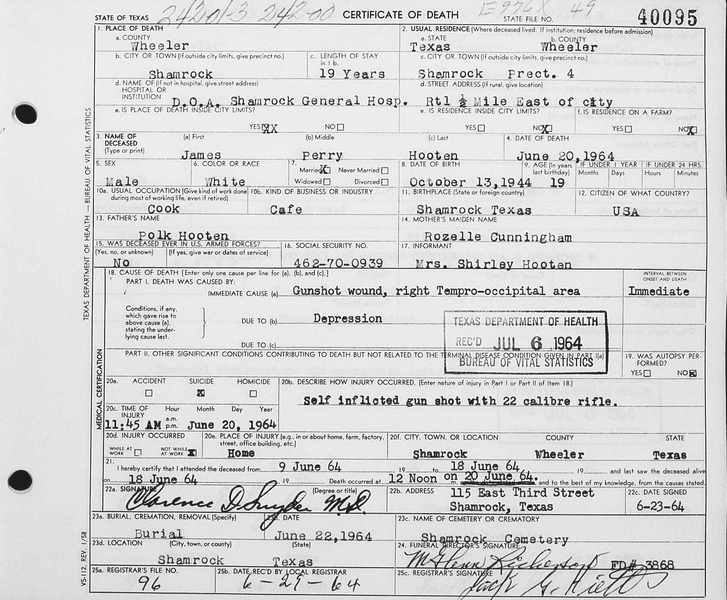 STATE OF TEXAS 24201-3 242-00 CERTIFICATE OF DEATH STATE FILE NO. 49 40095
1. PLACE OF DEATH 2. USUAL RESIDENCE (Where deceased lived. If institution: residence before admission)
a. COUNTY a. STATE b. COUNTY
Wheeler Texas Wheeler
b. CITY OR TOWN (If outside city limits, give precinct no.) c. LENGTH OF STAY in 1 b. c. CITY OR TOWN (If outside city limits, give precinct no.)
Shamrock 19 Years Shamrock Prect. 4
d. NAME OF (If not in hospital, give street address) HOSPITAL OR INSTITUTION d. STREET ADDRESS (If rural, give location)
D.O.A. Shamrock General Hosp. Rt1 ½ Mile East of city
e. IS PLACE OF DEATH INSIDE CITY LIMITS? e. IS RESIDENCE INSIDE CITY LIMITS? f. IS RESIDENCE ON A FARM?
YES X NO YES NO X YES NO X
3. NAME OF DECEASED (Type or print) (a) First (b) Middle (c) Last 4. DATE OF DEATH
James Perry Hooten June 20,1964
5. SEX 6. COLOR OR RACE 7. Married X Never Married Widowed Divorced 8. DATE OF BIRTH 9. AGE (In years last birthday) IF UNDER 1 YEAR Months Days IF UNDER 24 HRS. Hours Minutes
Male White October 13,1944 19
10a. USUAL OCCUPATION (Give kind of work done during most of working life, even if retired) 10b. KIND OF BUSINESS OR INDUSTRY 11. BIRTHPLACE (State or foreign country) 12. CITIZEN OF WHAT COUNTRY?
Cook Cafe Shamrock Texas USA
13. FATHER'S NAME 14. MOTHER'S MAIDEN NAME
Polk Hooten Rozelle Cunningham
15. WAS DECEASED EVER IN U.S. ARMED FORCES? (Yes, no, or unknown) (If yes, give war or dates of service) 16. SOCIAL SECURITY NO. 17. INFORMANT
No 462-70-0939 Mrs. Shirley Hooten
18. CAUSE OF DEATH [Enter only one cause per line for (a), (b), and (c).] INTERVAL BETWEEN ONSET AND DEATH
PART I. DEATH WAS CAUSED BY:
IMMEDIATE CAUSE (a) Gunshot wound, right Tempro-occipital area Immediate
Conditions, if any, which gave rise to above cause (a), stating the underlying cause last.
DUE TO (b) Depression
DUE TO (c)
TEXAS DEPARTMENT OF HEALTH
REC'D JUL 6 1964
BUREAU OF VITAL STATISTICS
PART II. OTHER SIGNIFICANT CONDITIONS CONTRIBUTING TO DEATH BUT NOT RELATED TO THE TERMINAL DISEASE CONDITION GIVEN IN PART I(a) 19. WAS AUTOPSY PERFORMED?
YES NO X
20a. ACCIDENT SUICIDE X HOMICIDE 20b. DESCRIBE HOW INJURY OCCURRED. (Enter nature of injury in Part I or Part II of Item 18.)
Self inflicted gun shot with 22 calibre rifle.
20c. TIME OF INJURY Hour a.m. p.m. Month Day Year
11:45 AM June 20, 1964
20d. INJURY OCCURRED WHILE AT WORK NOT WHILE AT WORK X 20e. PLACE OF INJURY (e.g., in or about home, farm, factory, street, office building, etc.) 20f. CITY, TOWN, OR LOCATION COUNTY STATE
Home Shamrock Wheeler Texas
21. I hereby certify that I attended the deceased from 9 June 64 19 to 18 June 64 19 and last saw the deceased alive
on 18 June 64 19 . Death occurred at 12 Noon on 20 June 64. and to the best of my knowledge, from the causes stated.
22a. SIGNATURE (Degree or title) 22b. ADDRESS 22c. DATE SIGNED
Clarence D. Snyder M.D. 115 East Third Street
Shamrock, Texas 6-23-64
23a. BURIAL, CREMATION, REMOVAL (Specify) 23b. DATE 23c. NAME OF CEMETERY OR CREMATORY
Burial June 22,1964 Shamrock Cemetery
23d. LOCATION (City, town, or county) (State) 24. FUNERAL DIRECTOR'S SIGNATURE
Shamrock Texas FD# 3868
25a. REGISTRAR'S FILE NO. 25b. DATE REC'D BY LOCAL REGISTRAR 25c. REGISTRAR'S SIGNATURE
96 6-29-64 Jack G.
TEXAS DEPARTMENT OF HEALTH — BUREAU OF VITAL STATISTICS
MEDICAL CERTIFICATION
VS-112 REV. 1/58